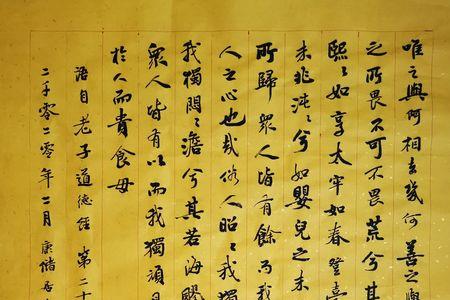 唯之與何相去幾何善之與
之所畏不可不畏荒兮其
熙〻如享太牢如春登
未兆沌〻兮如嬰兒之未
所歸眾人皆有餘而我
人之心也哉俗人昭〻我獨
我獨悶〻澹兮其若海飂
眾人皆有以而我獨頑且
於人而貴食母
語自老子道德經 第二十
二千零二零年二月